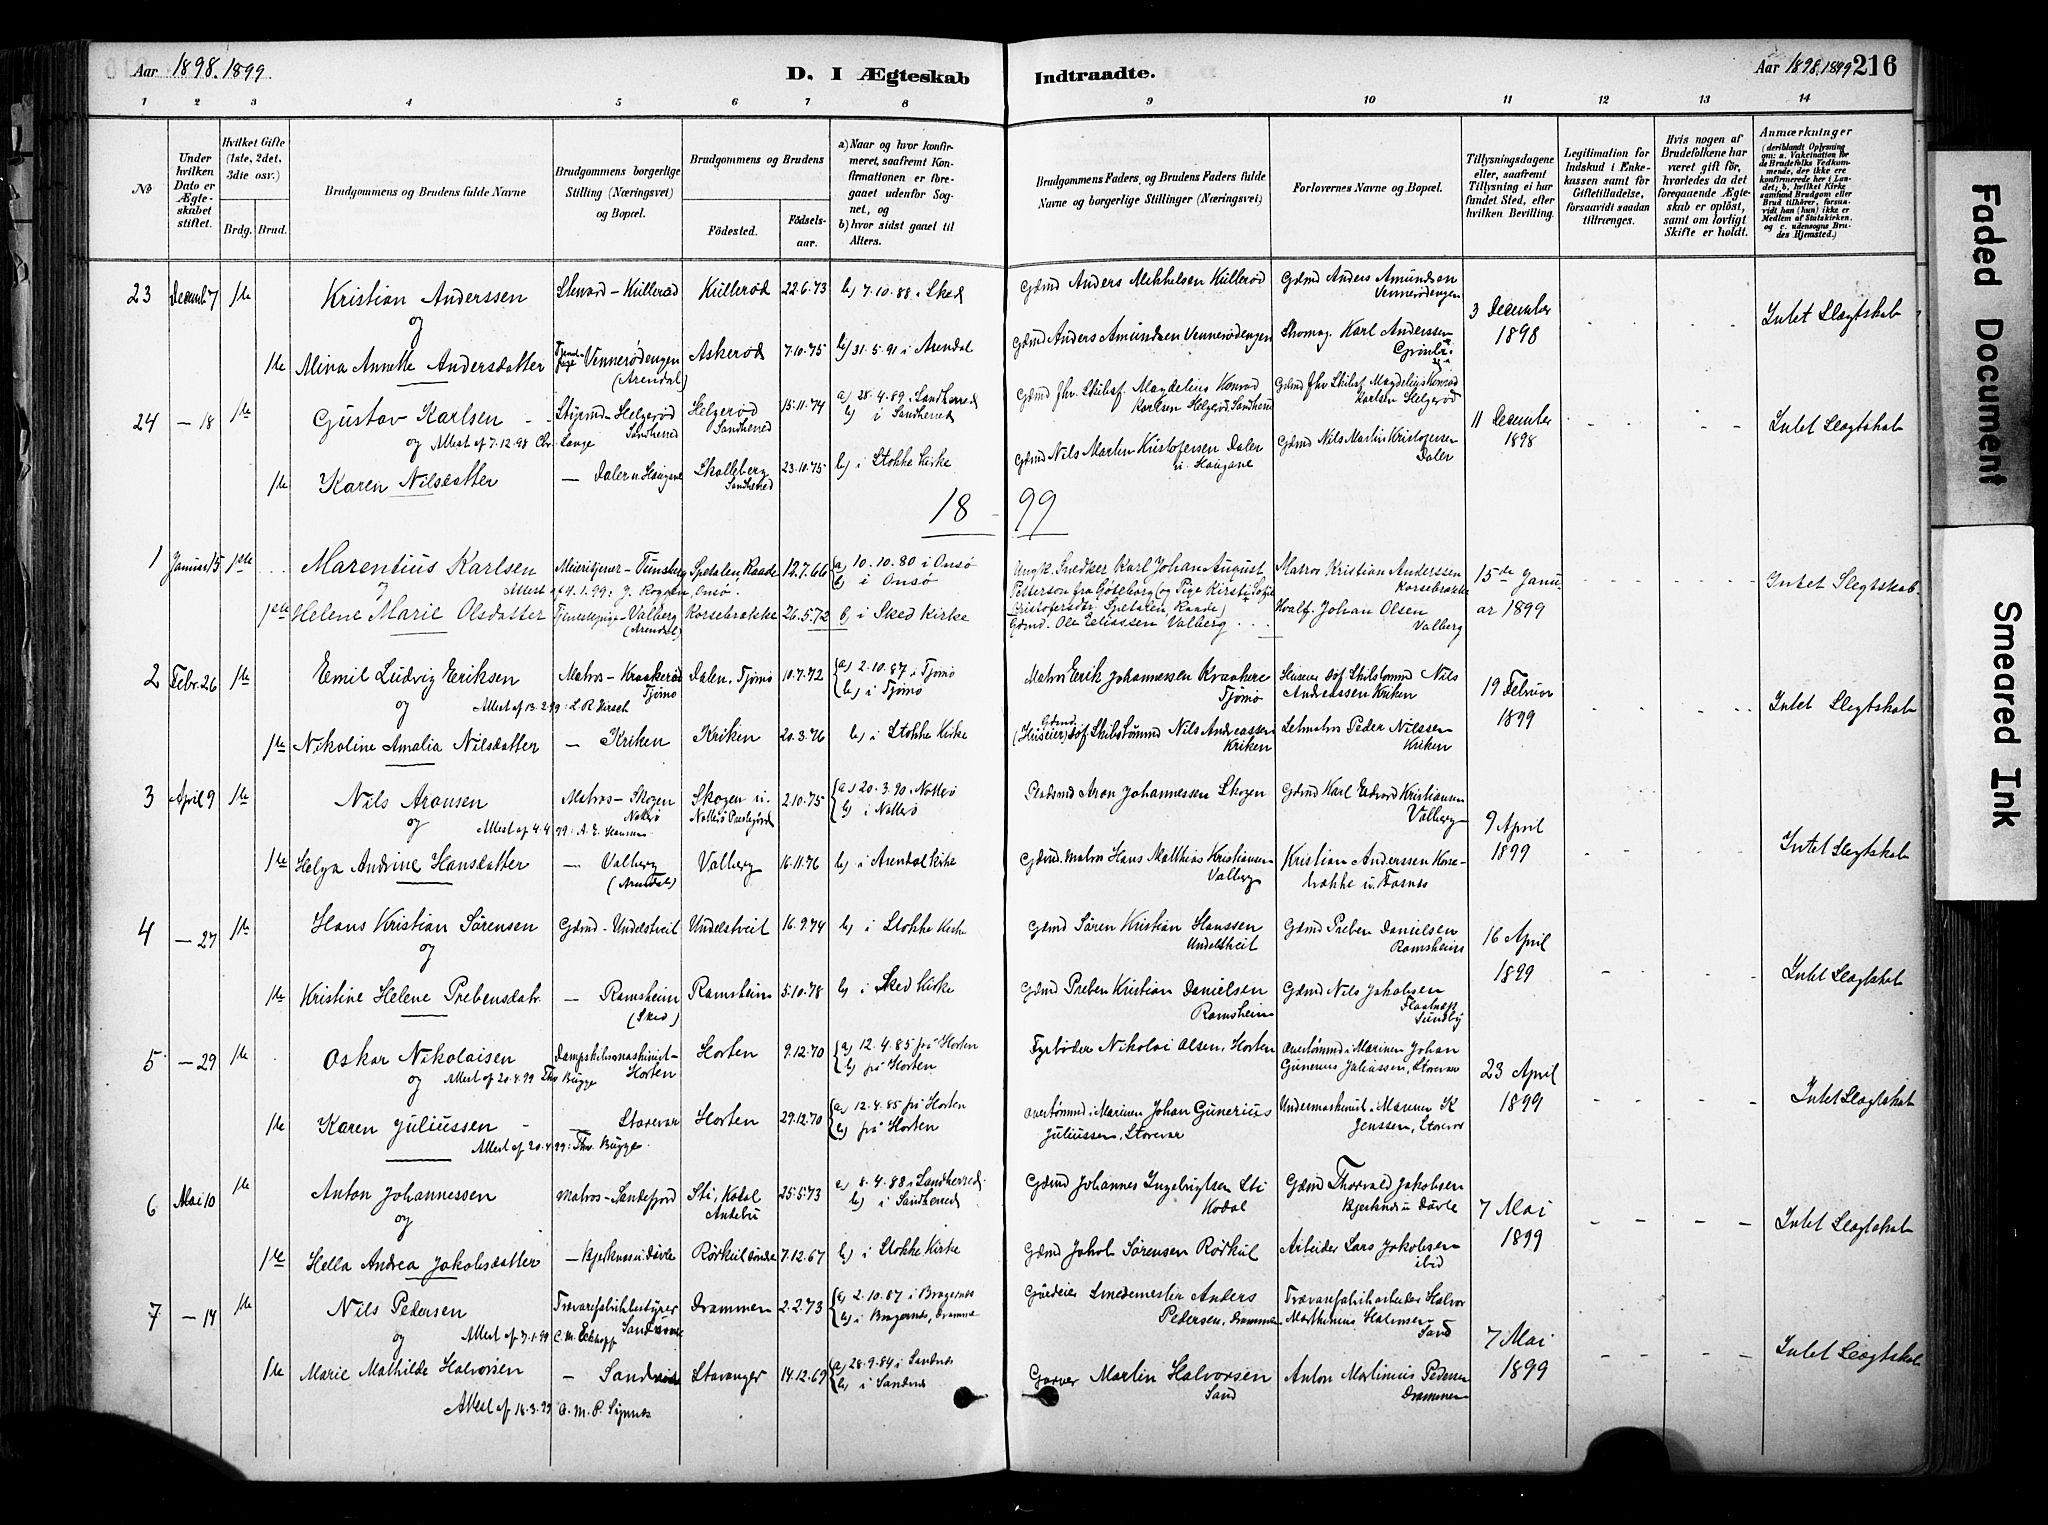 Aar 1898. 1899
D. I Ægteskab Indtraadte.
Aar 1898. 1899 216
1 2 3 4 5 6 7 8 9 10 11 12 13 14
No
Under hvilken Dato er Ægteskabet stiftet.
Hvilket Gifte (1ste, 2det, 3die osv.)
Brdg. Brud.
Brudgommens og Brudens fulde Navne
Brudgommens borgerlige Stilling (Næringsvei) og Bopæl.
Brudgommens og Brudens
Fødested.
Fødselsaar.
a) Naar og hvor konfirmeret, saafremt Konfirmationen er foregaaet udenfor Sognet, og
b) hvor sidst gaaet til Alters.
Brudgommens Faders, og Brudens Faders fulde Navne og borgerlige Stillinger (Næringsvei)
Forlovernes Navne og Bopæl.
Tillysningsdagene eller, saafremt Tillysning ei har fundet Sted, efter hvilken Bevilling.
Legitimation for Indskud i Enkekassen samt for Giftetilladelse, forsaavidt saadan tiltrænges.
Hvis nogen af Brudefolkene har været gift før, hvorledes da det foregaaende Ægteskab er opløst, samt om lovligt Skifte er holdt.
Anmærkninger
(deriblandt Oplysning om: a. Vakcination for de Brudefolks Vedkommende, der ikke ere konfirmerede her i Landet; b. hvilket Kirkesamfund Brudgom eller Brud tilhører, forsavidt han (hun) ikke er Medlem af Statskirken. og c. udensogns Brudes Hjemsted.)
23 Decemb 7 1ste Kristian Anderssen Steward - Kullerød Kullerød 22.6.73 b) 7.10.88 i Sked Gdmd Anders Mikkelsen Kullerød Gdmd Anders Amundsen Vennerødengen 3 December 1898 Intet Slægtskab
og
1ste Mina Annette Andersdatter Vennerødengen (Arendal) Askerød 7.10.75 b) 31.5.91 i Arendal Gdmd Anders Amundsen Vennerødengen Skomag. Karl Anderssen
24 - 18 1ste Gustav Karlsen Styrmd - Helgerød Sandherred Helgerød Sandherred 15.11.74 a) 28.4.89 i Sandherred b) i Sandherred Gdmd Magdelius Konrad Karlsen Helgerød, Sandherred Gdmd Magdelius Konrad Karlsen Helgerød 11 December 1898 Intet Slægtskab
og Attest af 7.12.98 Chr. Lange
1ste Karen Nilsdatter - Daler u. Haugane Skalleberg Sandherred 23.10.75 b) i Stokke Kirke Gdmd Nils Martin Kristofersen Daler u. Haugane Gdmd Nils Martin Kristofersen Daler
18 - 99
1 Januar 15 1ste Marentius Karlsen Meieritjener - Tunsberg Spetalen, Raade 12.7.66 a) 10.10.80 i Onsø b) i Onsø Ungk. Snedker Karl Johan August Petterson fra Gøteborg (og Pige Kirsti Sofie Kristofersdr. Spetalen Raade) Matros Kristian Anderssen Korsebrække 15de Januar 1899 Intet Slægtskab
og
1ste Helene Marie Olsdatter Tjenestepige - Valberg (Arendal) Korsebrække 26.5.72 b) i Sked Kirke Gdmd. Ole Eliassen Valberg Johan Olsen Valberg
2 Febr. 26 1ste Emil Ludvig Eriksen Matros - Kraakerød Tjømø Dalen, Tjømø 10.7.72 a) 2.10.87 i Tjømø b) i Tjømø Matros Erik Johannessen Kraakere Tjømø Nils Andreassen Kriken 19 Februar 1899 Intet Slegtskab
og Attest af 13.2.99: L R Hersch
1ste Nikoline Amalia Nilsdatter - Kriken Kriken 20.3.76 b) i Stokke Kirke Gdmd (Huseier) Nils Andreassen Kriken Letmatros Peder Nilssen Kriken
3 April 9 1ste Nils Aronsen Matros - Skogen Nøtterø Skogen u. Nøtterø Prestegård 2.10.75 a) 20.3.90 Nøtterø b) i Nøtterø Aron Johannessen Skogen Gdmd Karl Edvard Kristiansen Valberg 9 April 1899 Intet Slegtskab
og Attest af 4.4.99: A. E. Hansen
1ste Helga Andrine Hansdatter - Valberg (Arendal) Valberg 16.11.76 b) i Arendal Kirke Gdmd. Matros Hans Matthias Kristiansen Valberg Kristian Anderssen Korsebrække u. Fosnes
4 - 27 1ste Hans Kristian Sørensen Gdmd - Undelstveit Undelstveit 16.9.74 b) i Stokke Kirke Gdmd Søren Kristian Hanssen Undelstveit Gdmd Preben Danielsen Ramsheim 16 April 1899 Intet Slægtskab
og
1ste Kristine Helene Prebensdatr. - Ramsheim (Sked) Ramsheim 5.10.78 b) i Sked Kirke Gdmd Preben Kristian Danielsen Ramsheim Gdmd Nils Jakobsen Sundby
5 - 29 1ste Oskar Nikolaisen Dampskibsmaskinist - Horten Horten 9.12.70 a) 12.4.85 på Horten b) på Horten Fyrbøder Nikolai Olsen, Horten Overtømmd i Marinen Johan Gunerius Juliussen, Storevar 23 April 1899 Intet Slægtskab
og Attest af 20.4.99 Thv. Bugge
1ste Karen Juliussen - Storevar Horten 29.12.70 a) 12.4.85 på Horten b) på Horten Overtømmd i Marinen Johan Gunerius Juliussen, Storevar Undermaskinist i Marinen K Jenssen, Storevar
Attest af 20.4.99: Thv. Bugge
6 Mai 10 1ste Anton Johannessen Matros - Sandefjord Sti, Kodal Andebu 25.5.73 a) 8.4.88 i Sandherred b) i Sandherred Gdmd Johannes Ingebrigtsen Sti Kodal Gdmd Thorvald Jakobsen Bjerknes u Døvle 7 Mai 1899 Intet Slægtskab
og
1ste Hella Andrea Jakobsdatter - Bjerknes u Døvle Rørkul 7.12.67 b) i Stokke Kirke Gdmd Jakob Sørensen Rørkul Arbeider Lars Jakobsen ibid
7 - 14 1ste Nils Pedersen Trævarefabrikbestyrer Drammen 2.2.73 a) 2.10.87 i Bragernes b) i Bragernes, Dramme Gårdeier Smedemester Anders Pedersen, Drammen Trævarefabrikarbeider Halvor Marthinius Halvorsen Sand 7 Mai 1899 Intet Slægtskab
og Attest af 7.1.99 C. M. Eckhoff
1ste Marie Mathilde Halvorsen - Stavanger 14.12.69 a) 28.9.84 i Sandnes b) i Sandnes Garver Martin Halvorsen Sand Anton Martinius Pedersen Drammen
Attest af 18.3.99
Faded Document
Smeared Ink